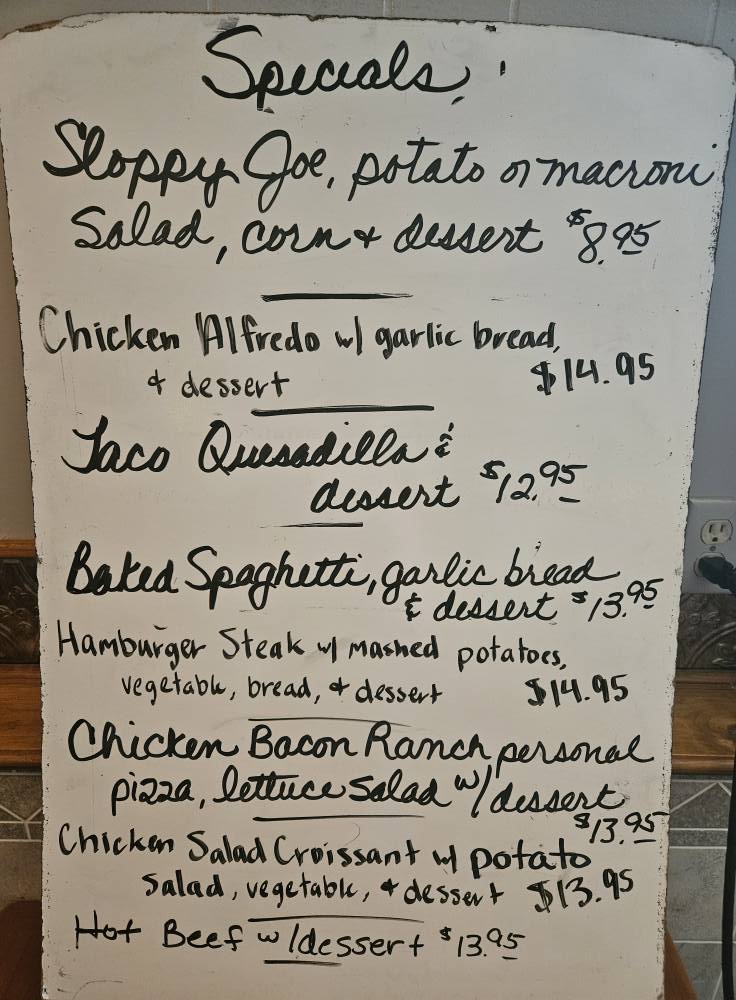 Specials:
Sloppy Joe, potato or macroni
Salad, corn & dessert $8.95
Chicken Alfredo w/ garlic bread,
& dessert $14.95
Taco Quesadilla &
dessert $12.95
Baked Spaghetti, garlic bread
& dessert $13.95
Hamburger Steak w/ mashed potatoes,
vegetable, bread, & dessert $14.95
Chicken Bacon Ranch personal
pizza, lettuce salad w/ dessert
$13.95
Chicken Salad Croissant w/ potato
salad, vegetable, & dessert $13.95
Hot Beef w/dessert $13.95